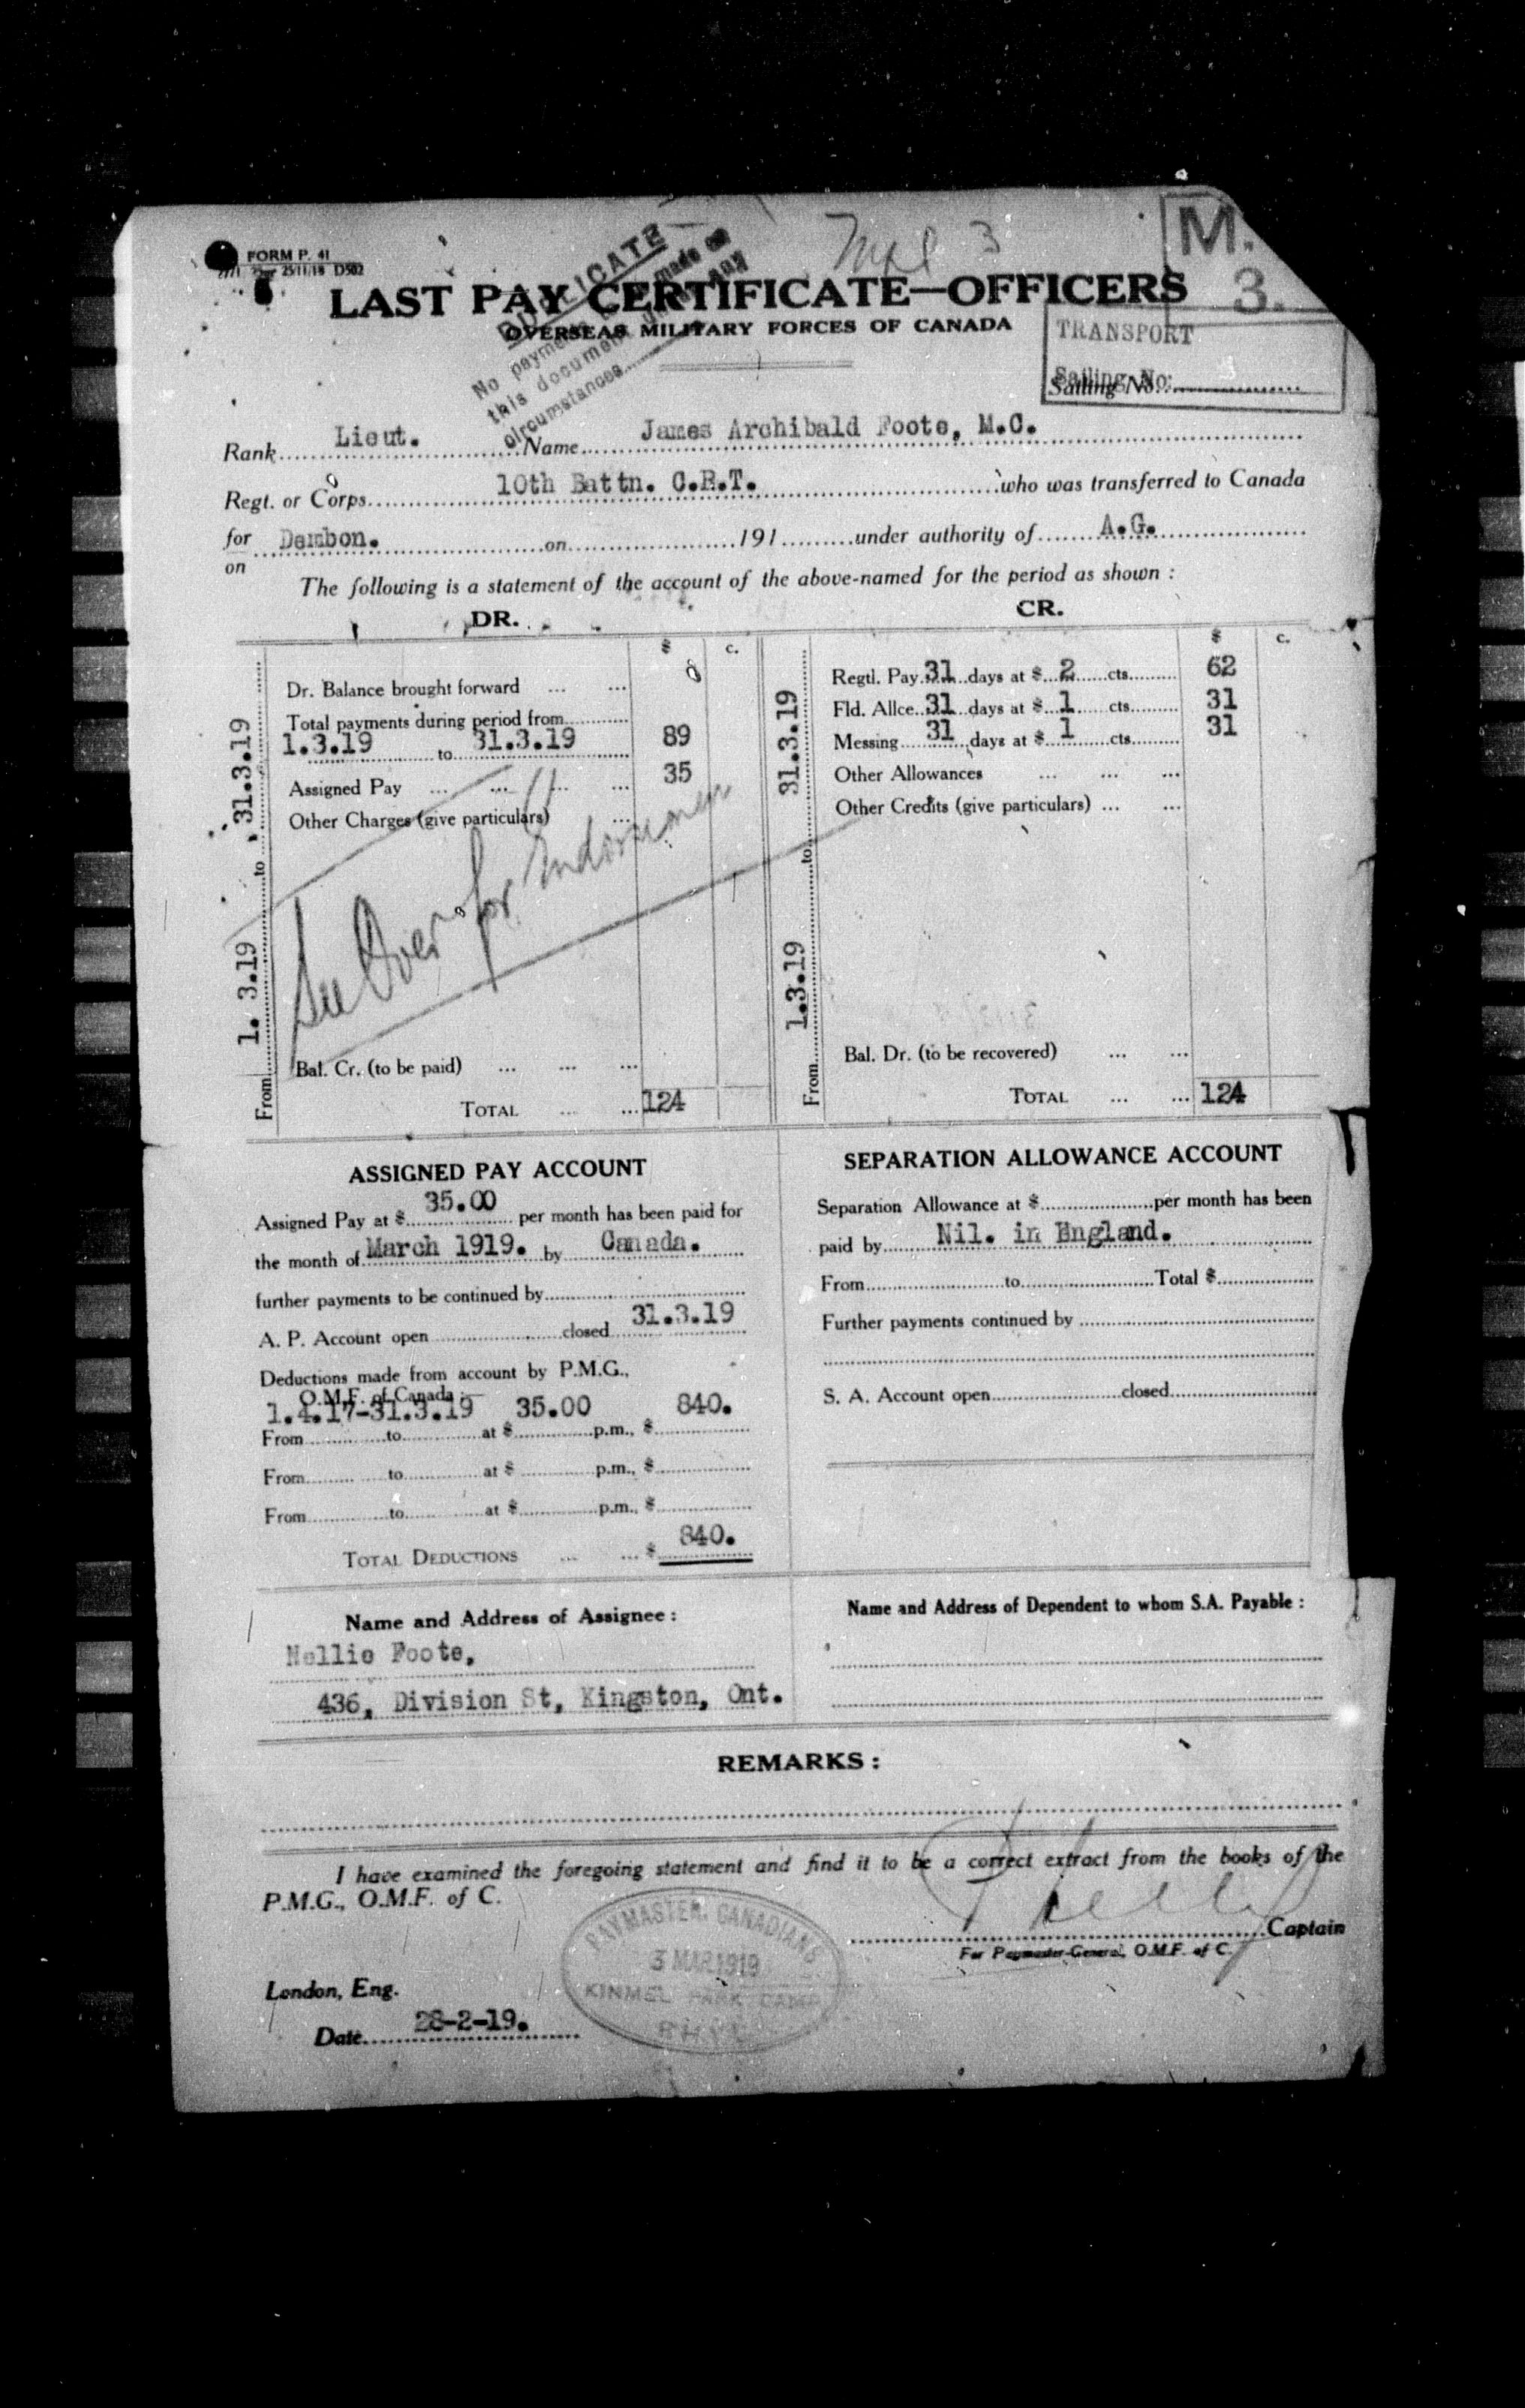 FORM P. 41
25/11/18 D502
Mil 3
M.
3.
DUPLICATE
No payment made on
this document any
circumstances
LAST PAY CERTIFICATE—OFFICERS
OVERSEAS MILITARY FORCES OF CANADA
TRANSPORT
Sailing No:
Sailing No.
Rank Lieut. Name James Archibald Foote, M.C.
Regt. or Corps 10th Battn. C.R.T. who was transferred to Canada
for Dembon. on 191 under authority of A.G.
on
The following is a statement of the account of the above-named for the period as shown :
DR. CR.
$ c. $ c.
From 1. 3.19 to 31.3.19
Dr. Balance brought forward ... ...
Total payments during period from
1.3.19 to 31.3.19 89
Assigned Pay ... ... ... ... 35
Other Charges (give particulars) ...
See Over for
Bal. Cr. (to be paid) ... ... ...
TOTAL ... ... 124
From 1.3.19 to 31.3.19
Regtl. Pay 31 days at $ 2 cts. 62
Fld. Allce. 31 days at $ 1 cts. 31
Messing 31 days at $ 1 cts. 31
Other Allowances ... ... ...
Other Credits (give particulars) ... ...
Bal. Dr. (to be recovered) ... ...
TOTAL ... ... 124
ASSIGNED PAY ACCOUNT
Assigned Pay at $ 35.00 per month has been paid for
the month of March 1919. by Canada.
further payments to be continued by
A. P. Account open closed 31.3.19
Deductions made from account by P.M.G.,
O.M.F. of Canada :—
1.4.17-31.3.19 35.00 840.
From to at $ p.m., $
From to at $ p.m., $
From to at $ p.m., $
TOTAL DEDUCTIONS ... ... $ 840.
SEPARATION ALLOWANCE ACCOUNT
Separation Allowance at $ per month has been
paid by Nil. in England.
From to Total $
Further payments continued by
S. A. Account open closed
Name and Address of Assignee :
Nellie Foote,
436, Division St, Kingston, Ont.
Name and Address of Dependent to whom S.A. Payable :
REMARKS :
I have examined the foregoing statement and find it to be a correct extract from the books of the
P.M.G., O.M.F. of C.
Captain
For Paymaster-General, O.M.F. of C.
PAYMASTER, CANADIANS
3 MAR 1919
KINMEL PARK CAMP
RHYL
London, Eng.
Date 28-2-19.